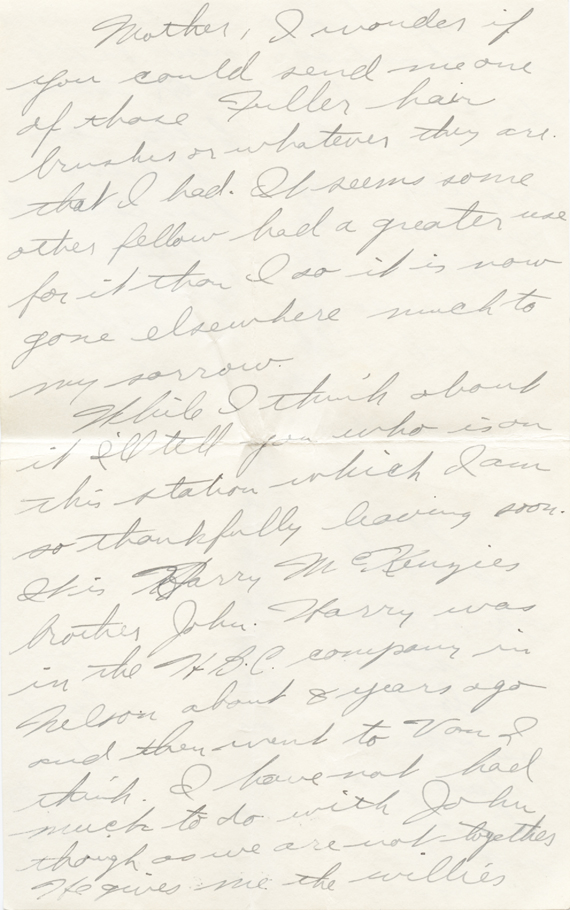 Mother, I wonder if
you could send me one
of those Fuller hair
brushes or whatever they are.
that I had. It seems some
other fellow had a greater use
for it than I so it is now
gone elsewhere much to
my sorrow.
While I think about
it I'll tell you who is on
this station which I am
so thankfully leaving soon.
It is Harry McKenzies
brother John. Harry was
in the H.B.C. company in
Nelson about 8 years ago
and then went to Van I
think. I have not had
much to do with John
though as we are not together
He gives me the willies